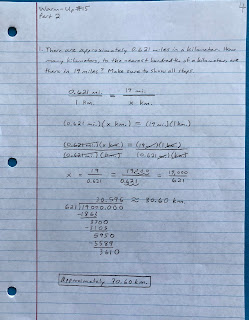 Warm-Up #15
4
Part 2
1. There are approximately 0.621 miles in a kilometer. How
many kilometers, to the nearest hundredth of a kilometer, are
there in 19 miles? Make sure to show all steps.
0.621 mi. = 19 mi.
1 km. x km.
(0.621 mi.)(x km.) = (19 mi.)(1 km.)
(0.621 mi.)(x km.) = (19 mi.)(1 km.)
(0.621 mi.)(km.) (0.621 mi.)(km.)
x = 19 = 19.000 = 19,000
0.621 0.621 621
30.596 ≈ 30.60 km.
621)19000.000
-1863
3700
-3105
5950
-5589
3610
Approximately 30.60 km.